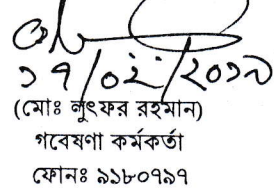 ১৭/০২/২০১৯
(মোঃ লুৎফর রহমান)
গবেষণা কর্মকর্তা
ফোনঃ ৯১৮০৭৯৭